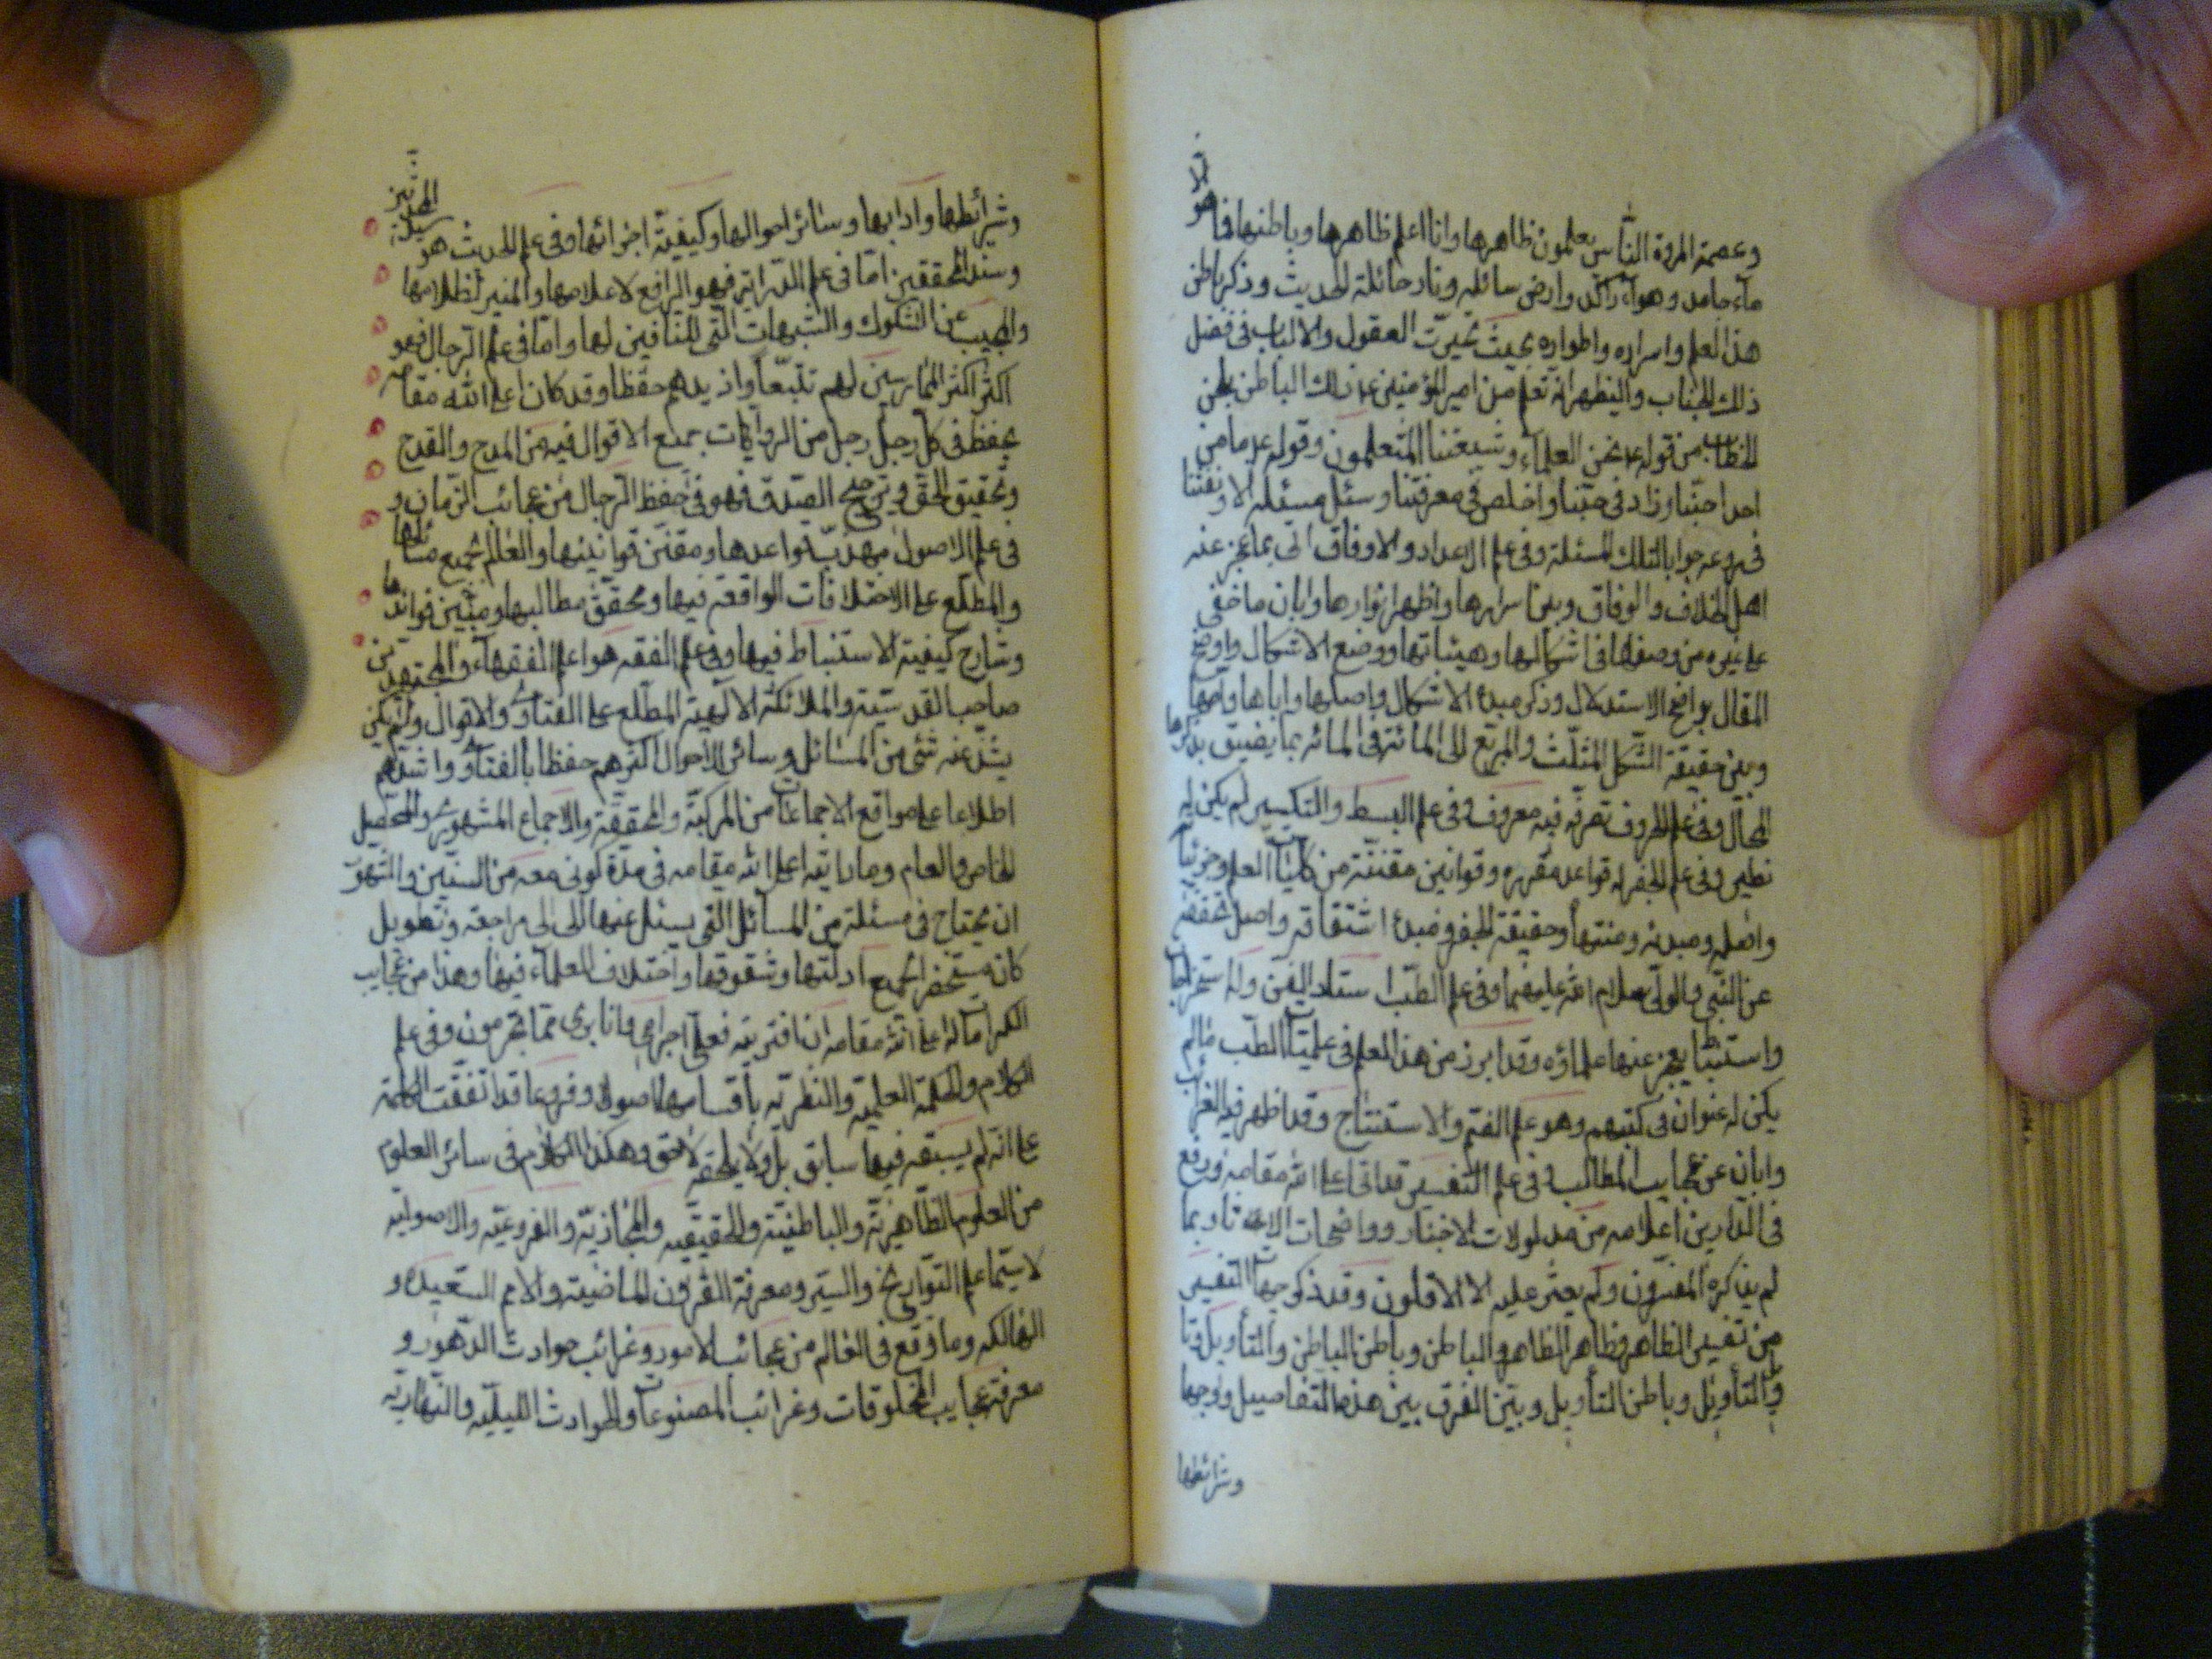 وعصمة المروة الناس يعلمون ظاهرها وانا اعلم ظاهرها وباطنها فما هو
ماء جامد وهواء راكد وارض سائلة ونار حائلة الحديث وذكر باطن
هذا العلم واسراره واطواره بحيث تحيرت العقول والالباب في فضل
ذلك الجناب وليظهر انه تعلم من امير المؤمنين عن ذلك الباطن بلحن
الخطاب من قوله ع نحن العلماء وشيعتنا المتعلمون وقوله ع ما من
احد احبنا وزاد في حبنا واخلص في معرفتنا وسئل مسئلة الا ونفثنا
في روعه جوابا لتلك المسئلة وفي علم الاعداد والاوفاق اتى بما عجز عنه
اهل الخلاف والوفاق وبين اسرارها واظهر انوارها وابان ما خفي
على غيره من وصفها في اشكالها وهيئاتها ووضع الاشكال واوضح
المقال بواضح الاستدلال وذكر مبدء الاشكال واصلها واباها وامها
وبين حقيقة الشكل المثلث والمربع الى المائة في المائة بما يضيق بذكرها
المجال وفي علم الحروف تصرفه فيه معروف وفي علم البسط والتكسير لم يكن له
نظير وفي علم الجفر له قواعد مقرره وقوانين مقننة من كليات العلم وجزئياته
واصله ومبدئه ومنتهاه وحقيقة الجفر ومبدء اشتقاقه واصل تحققه
عن النبي والولي سلام الله عليهما وفي علم الطب استاد الفن وله استخراجات
واستنباطات يعجز عنها علماؤه وقد ابرز من هذا العلم في علميات الطب ما لم
يكن له عنوان في كتبهم وهو علم الفتم والاستنتاج وقد اظهر فيه الغرائب
وابان عن عجايب المطالب وفي علم التفسير قد اتى اعلى الله مقامه ورفع
في الدارين اعلامه من مدلولات الاخبار وواضحات الاثار بما
لم يذكره المفسرون ولم يعثر عليه الا الاقلون وقد ذكر جهات التفسير
من تفسير الظاهر وظاهر الظاهر والباطن وباطن الباطن والتأويل
والتأويل وباطن التأويل وبين الفرق بين هذه التفاصيل ووجهها
وشرائطها
وشرائطها وادابها وسائر احوالها وكيفية اجرائها وفي علم الحديث هو سيد المحدثين
وسند المحققين اما في علم الدراية فهو الرافع لاعلامها والمنير لظلامها
والمجيب عن الشكوك والشبهات التي للنافين لها واما في علم الرجال فهو
اكثر اكثر الممارسين لهم تتبعاً وازيدهم حفظا وقد كان اعلى الله مقامه
يحفظ في كل رجل رجل من الرواة جميع الاقوال فيه من المدح والقدح
وتحقيق الحق وترجيح الصدق فهو في حفظ الرجال من عجائب الزمان و
في علم الاصول مهذب قواعدها ومقنن قوانينها والعالم بجميع مسائلها
والمطلع على الاختلافات الواقعة فيها ومحقق مطالبها ومبين فوائدها
وشارح كيفية الاستنباط فيها وفي علم الفقه هو اعلم الفقهاء والمجتهدين
صاحب القدسية والملائكة الالهية المطلع على الفتاوى والاقوال ولم يكن
يشذ عنه شئ من المسائل وسائر الاحوال اكثرهم حفظا بالفتاوى واشدهم
اطلاعا على مواقع الاجماعات من المركبة والمحققة والاجماع المشهوري والمحصل
الخاص والعام وما رايته اعلى الله مقامه في مدة كوني معه من السنين والشهور
ان يحتاج في مسئلة من المسائل التي يسئل عنها الى مراجعة وتطويل
كان مستحضرا لجميع ادلتها وشقوقها واختلاف العلماء فيها وهذا من عجايب
الكرامات له اعلى الله مقامه ان افتريته فعلي اجرامي وانا بري مما تجرمون وفي علم
الكلام والحكمة العلمية والنظرية باقسامها اصولا وفروعا قد اتفقت الكلمة
على انه لم يسبقه فيها سابق بل ولا يلحقه لاحق وهكذا الكلام في سائر العلوم
من العلوم الظاهرية والباطنية والحقيقيه والمجازية والفروعية والاصولية
لا سيما علم التواريخ والسير ومعرفة القرون الماضية والامم السعيدة و
الهالكه وما وقع في العالم من عجائب الامور وغرائب حوادث الدهور و
معرفة عجايب المخلوقات وغرائب المصنوعات والحوادث الليلية والنهارية